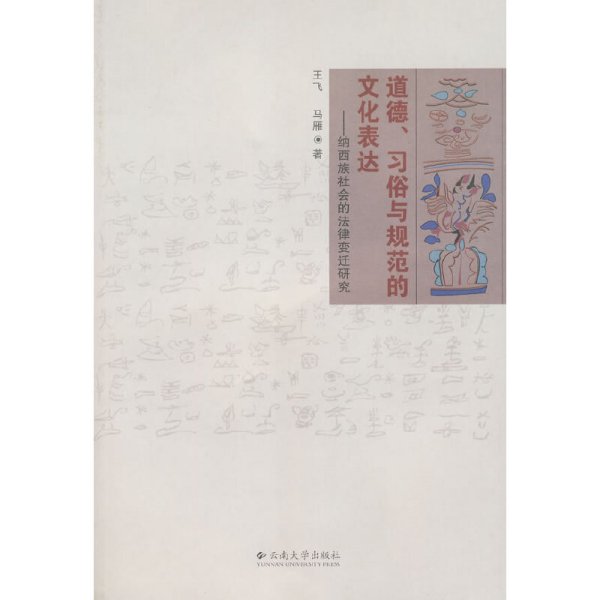 道德、习俗与规范的
文化表达
——纳西族社会的法律变迁研究
王飞 马雁◉著
云南大学出版社
YUNNAN UNIVERSITY PRESS